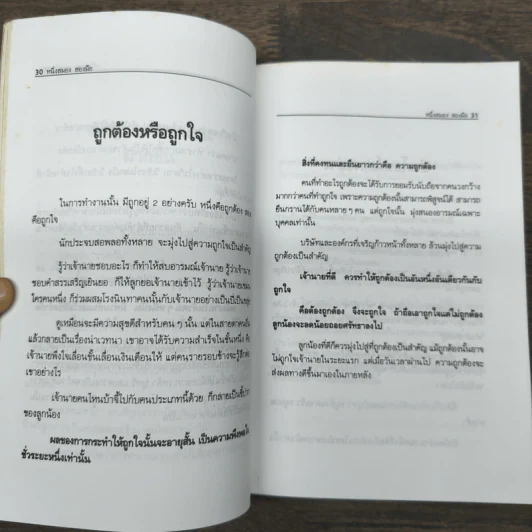 30 หนึ่งสมอง สองมือ
ถูกต้องหรือถูกใจ
ในการทำงานนั้น มีถูกอยู่ 2 อย่างครับ หนึ่งคือถูกต้อง สอง
คือถูกใจ
นักประจบสอพลอทั้งหลาย จะมุ่งไปสู่ความถูกใจเป็นสำคัญ
รู้ว่าเจ้านายชอบอะไร ก็ทำให้สบอารมณ์เจ้านาย รู้ว่าเจ้านาย
ชอบคำสรรเสริญเยินยอ ก็ให้ลูกยอเจ้านายเข้าไว้ รู้ว่าเจ้านาย
ใครคนหนึ่ง ก็ร่วมผสมโรงนินทาคนนั้นกับเจ้านายอย่างเป็นปี่เป็นขลุ่ย
ดูเหมือนจะมีความสุขดีสำหรับคน ๆ นั้น แต่ในสายตาคนอื่น
แล้วกลายเป็นเรื่องน่าเวทนา เขาอาจได้รับความสำเร็จในชั้นหนึ่ง คือ
เจ้านายพึงใจเลื่อนชั้นเลื่อนเงินเดือนให้ แต่คนรายรอบข้างจะรู้สึก
เขาอย่างไร
เจ้านายคนไหนบ้าจี้ไปกับคนประเภทนี้ด้วย ก็กลายเป็นเบี้ย
ของลูกน้อง
ผลของการกระทำให้ถูกใจนั้นจะอายุสั้น เป็นความพึงพอใจ
ชั่วระยะหนึ่งเท่านั้น
หนึ่งสมอง สองมือ 31
สิ่งที่คงทนและยืนยาวกว่าคือ ความถูกต้อง
คนที่ทำอะไรถูกต้องจะได้รับการยอมรับนับถือจากคนวงกว้าง
มากกว่าคนที่ทำถูกใจ เพราะความถูกต้องนั้นสามารถพิสูจน์ได้ สามารถ
ยืนกรานได้กับคนหลาย ๆ คน แต่ถูกใจนั้น มุ่งสนองอารมณ์เฉพาะ
บุคคลเท่านั้น
บริษัทและองค์กรที่เจริญก้าวหน้าทั้งหลาย ล้วนมุ่งไปสู่ความ
ถูกต้องเป็นสำคัญ
เจ้านายที่ดี ควรทำให้ถูกต้องเป็นอันหนึ่งอันเดียวกันกับ
ถูกใจ
คือต้องถูกต้อง จึงจะถูกใจ ถ้าถือเอาถูกใจแต่ไม่ถูกต้อง
ลูกน้องจะลดน้อยถอยศรัทธาลงไป
ลูกน้องที่ดีก็ควรมุ่งไปสู่ที่ถูกต้องเป็นสำคัญ แม้ถูกต้องนั้นอาจ
ไม่ถูกใจเจ้านายในระยะแรก แต่เมื่อวันเวลาผ่านไป ความถูกต้องจะ
ส่งผลทางดีขึ้นมาเองในภายหลัง